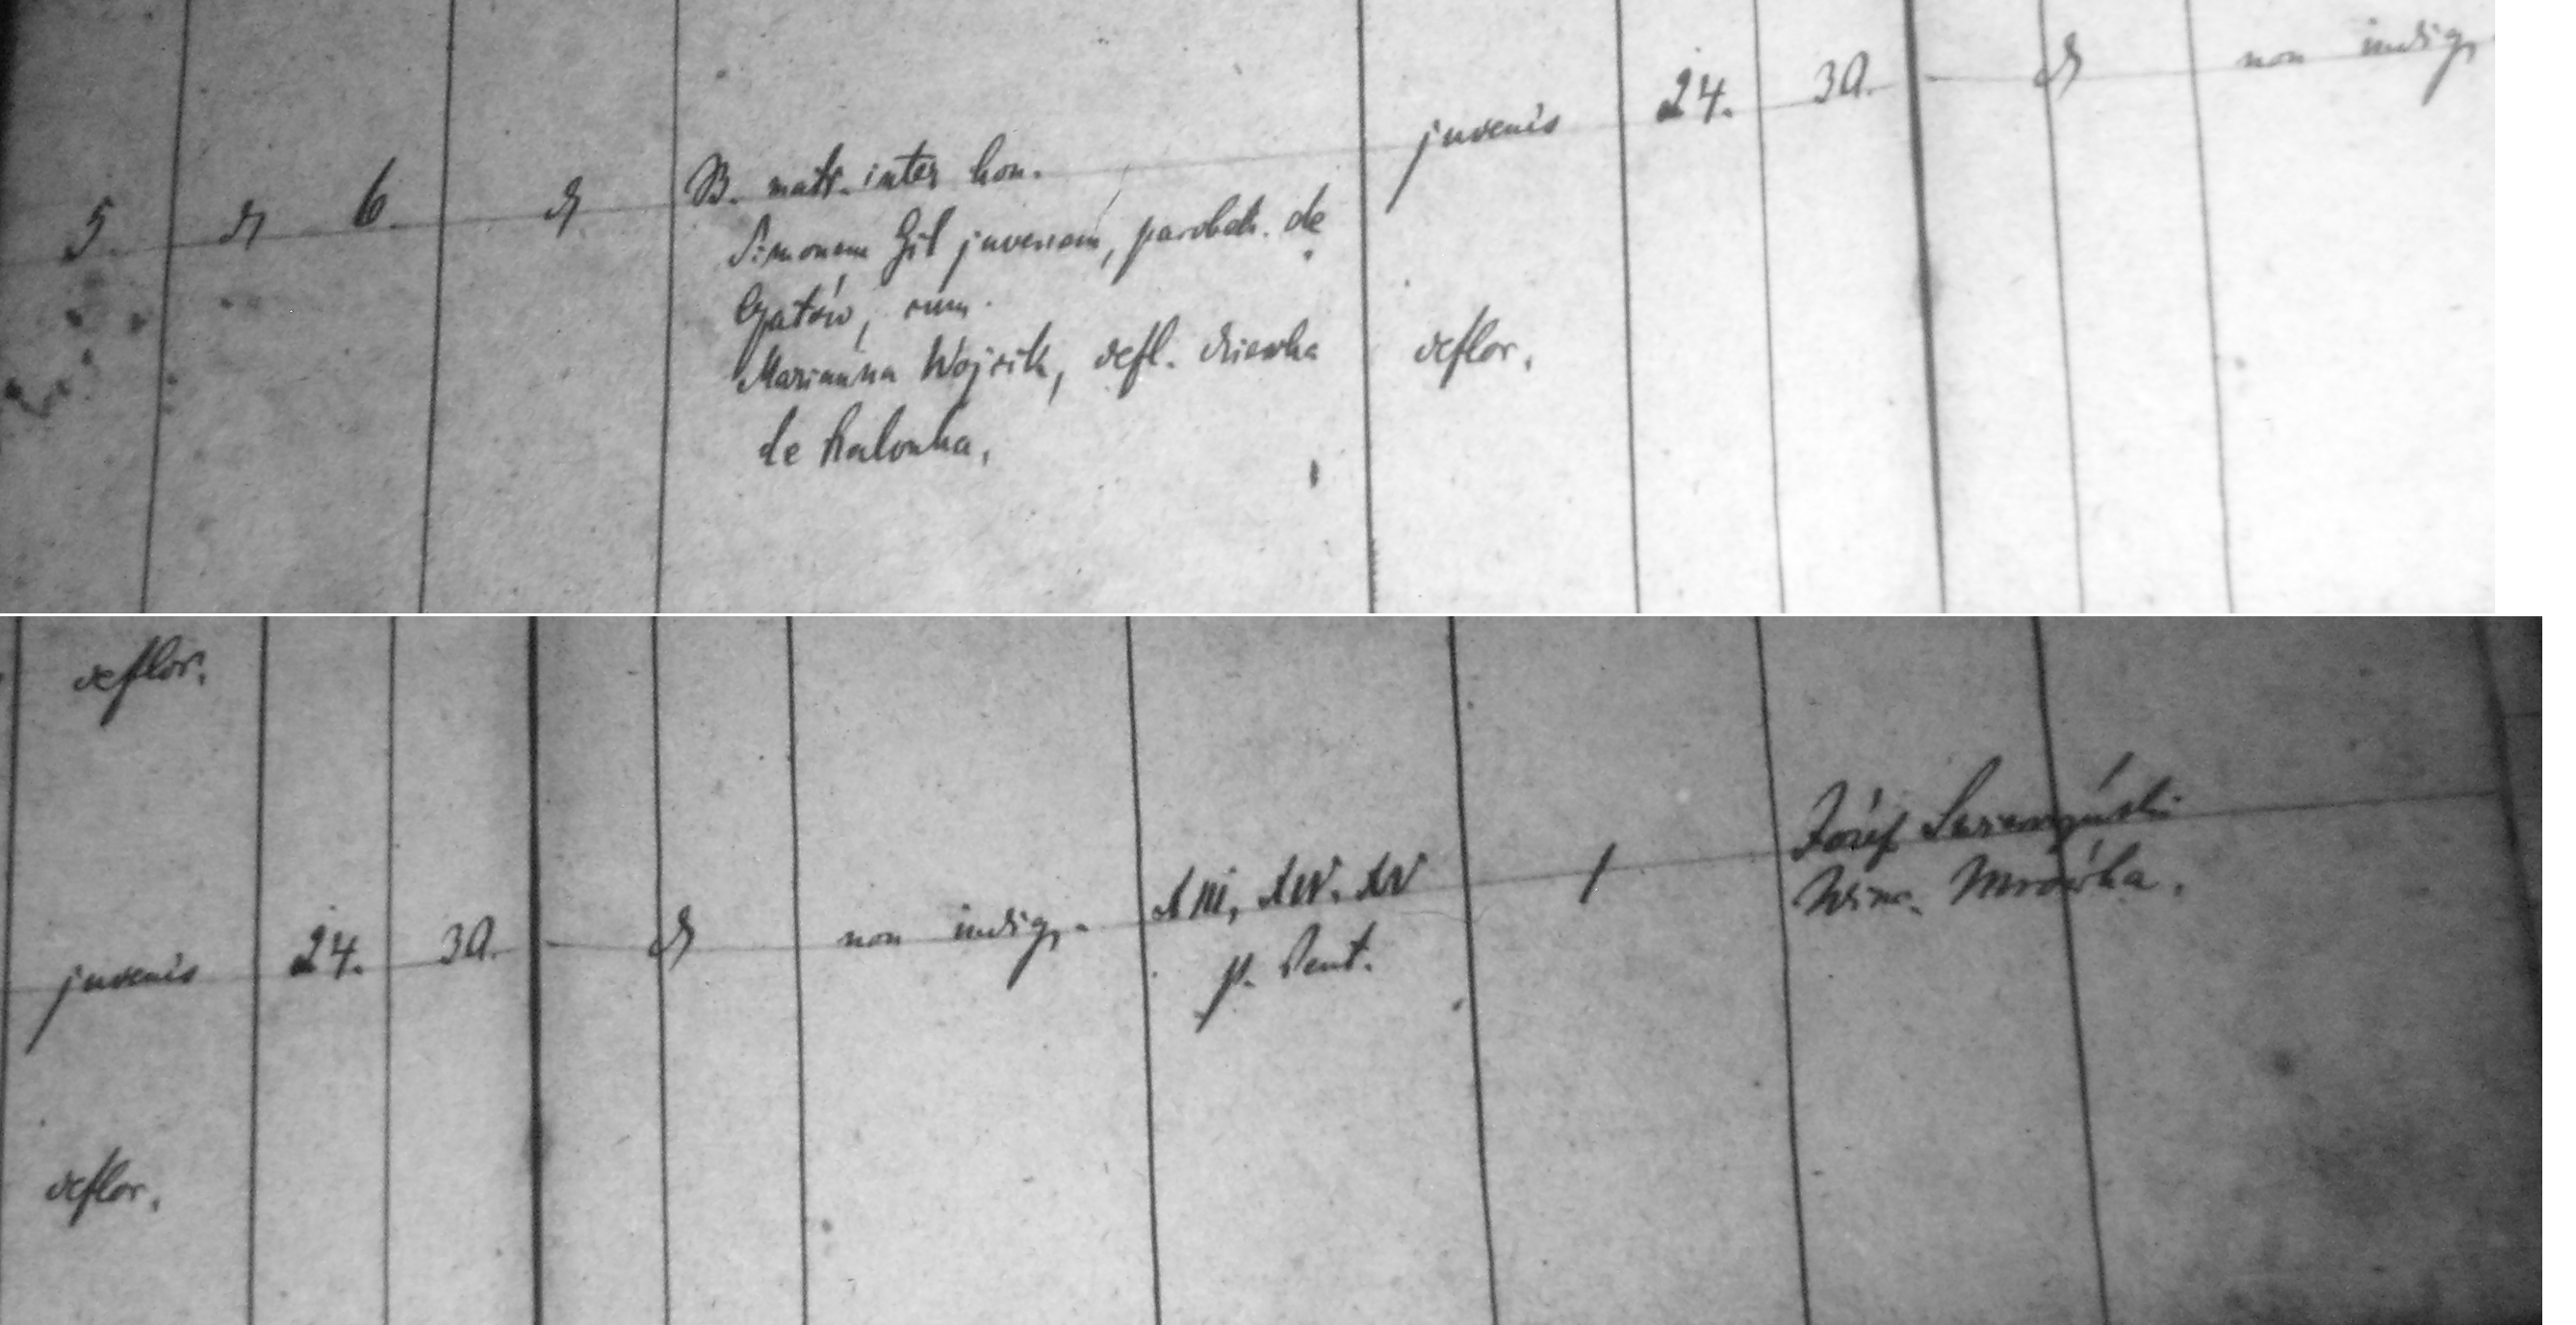 5. dt 6. dt
B. matr. inter hon.
Simonem Gil juvenem, parobek. de
Opatów, cum
Marianna Wojcik, defl. dziewka
de Kalonka,
juvenis 24. 30. dt non indig.
deflor.
deflor.
juvenis 24. 30. dt non indig. XIII, XIV. XV
p. Pent.
1
Józef
Winc. Mrówka.
deflor.